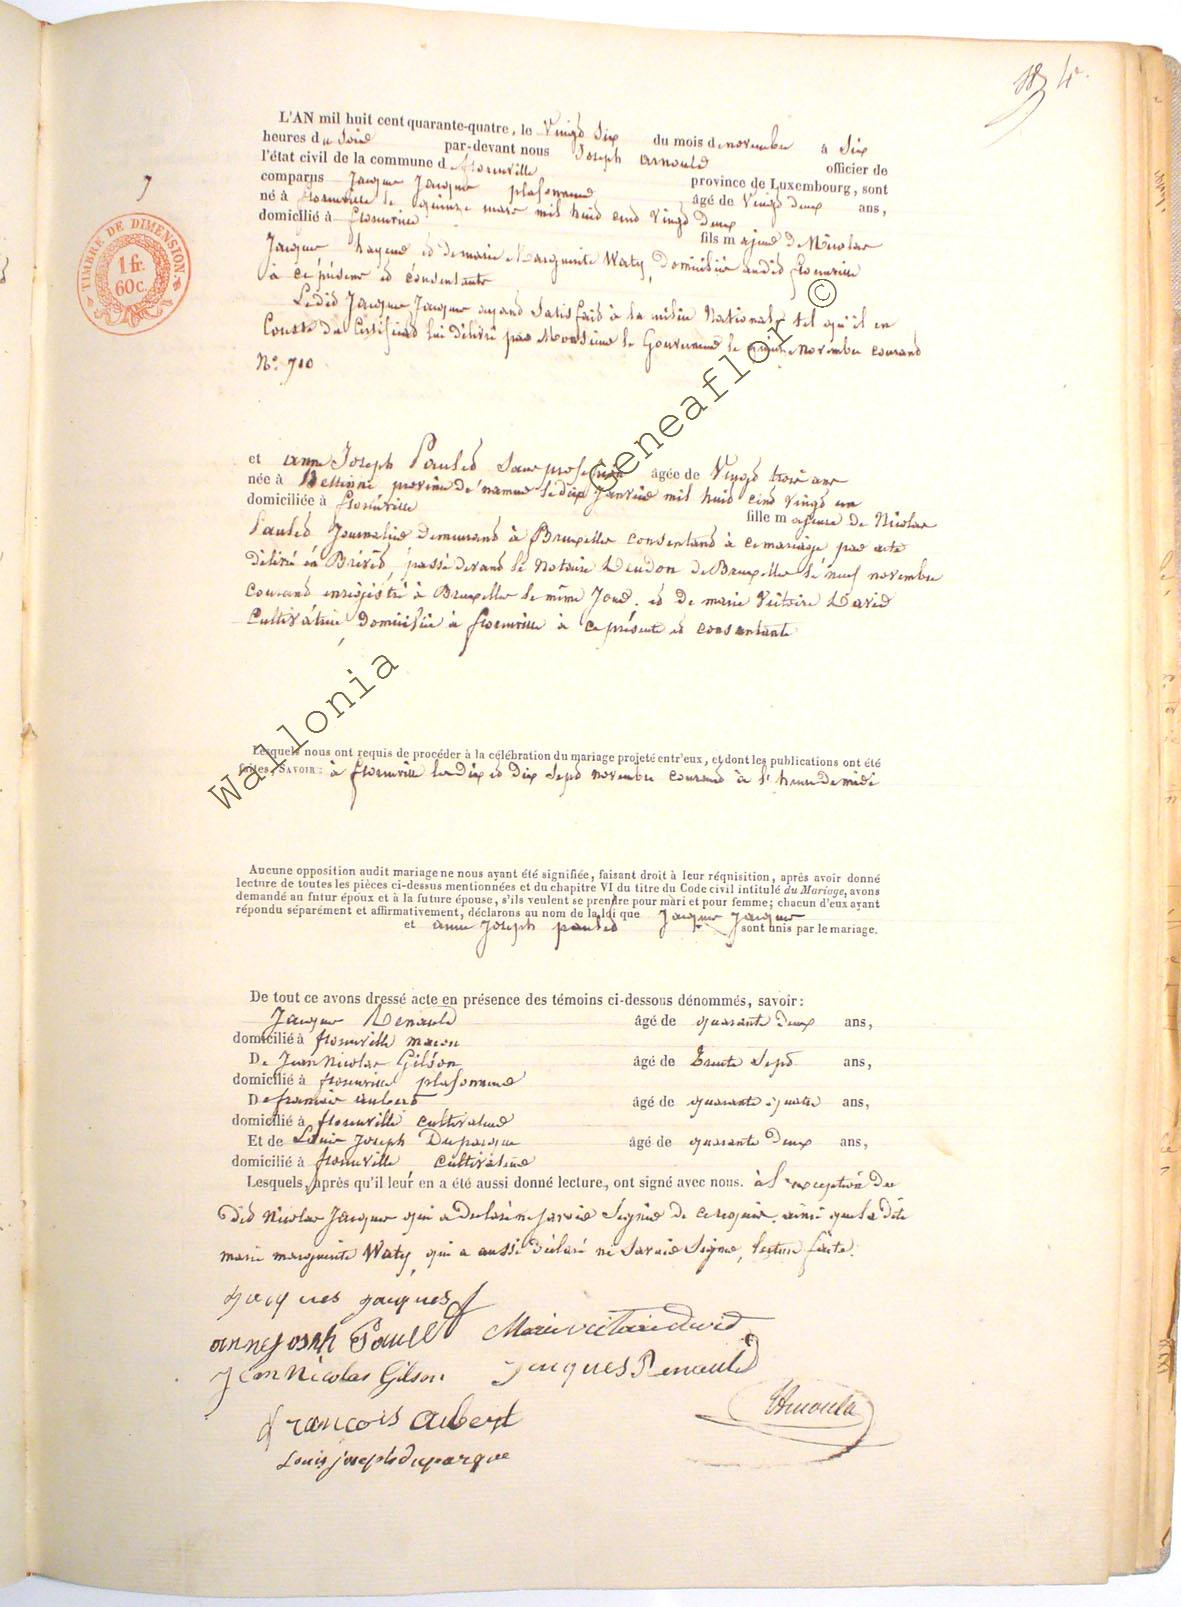 4e
L'AN mil huit cent quarante-quatre, le Vingt Six du mois de novembre à Six
heures du Soir par-devant nous Joseph Arnould officier de
l'état civil de la commune d florenville province de Luxembourg, sont
comparus Jacque Jacque plafonneur âgé de Vingt deux ans,
né à florenville le quinze mars mil huit cent Vingt Deux
domicilié à florenville fils majeur de Nicolas
Jacque et de marie Marguerite Waty, Domiciliée audit florenville
à ce présens et consentants
Ledit Jacque Jacque ayant Satisfait à la milice Nationale tel qu'il en
Conste du Certificat lui délivré par Monsieur le Gouverneur le novembre courant
No. 710
7
TIMBRE DE DIMENSION
1 fr.
60 c.
et anne Joseph Paulet Sans profession âgée de Vingt trois ans
née à province de namur le dix Janvier mil huit cent vingt un
domiciliée à florenville fille majeure de Nicolas
Paulet Journalier demeurant à Bruxelles consentant à ce mariage par acte
délivré en Brevet, passé devant le Notaire de Bruxelles le neuf novembre
courant enregistré à Bruxelles le même Jour, et de marie Victoire David
Cultivatrice Domiciliée à florenville à ce présente et consentante
Lesquels nous ont requis de procéder à la célébration du mariage projeté entr'eux, et dont les publications ont été
faites, SAVOIR: à florenville les dix et dix Sept novembre courant à l'heure de midi
Aucune opposition audit mariage ne nous ayant été signifiée, faisant droit à leur réquisition, après avoir donné
lecture de toutes les pièces ci-dessus mentionnées et du chapitre VI du titre du Code civil intitulé du Mariage, avons
demandé au futur époux et à la future épouse, s'ils veulent se prendre pour mari et pour femme; chacun d'eux ayant
répondu séparément et affirmativement, déclarons au nom de la loi que Jacque Jacque
et anne Joseph paulet sont unis par le mariage.
De tout ce avons dressé acte en présence des témoins ci-dessous dénommés, savoir:
Jacque Renauld âgé de quarante deux ans,
domicilié à florenville macon
De Jean Nicolas Gilson âgé de trente Sept ans,
domicilié à florenville plafonneur
De francois aubert âgé de quarante quatre ans,
domicilié à florenville cultivateur
Et de Louis Joseph Duparque âgé de quarante deux ans,
domicilié à florenville, cultivateur
Lesquels, après qu'il leur en a été aussi donné lecture, ont signé avec nous. à l'exception du
dit Nicolas Jacque qui a declaré ne savoir Signer de ce requis. ainsi que la dite
marie marguerite Waty, qui a aussi déclaré ne Savoir Signer, lecture faite.
jacques jacques
anne josph Paull Marie victoire david
Jean Nicolas Gilson Jacques Renauld
Arnould
françois aubert
Louis joseph duparque
Wallonia Geneaflor ©